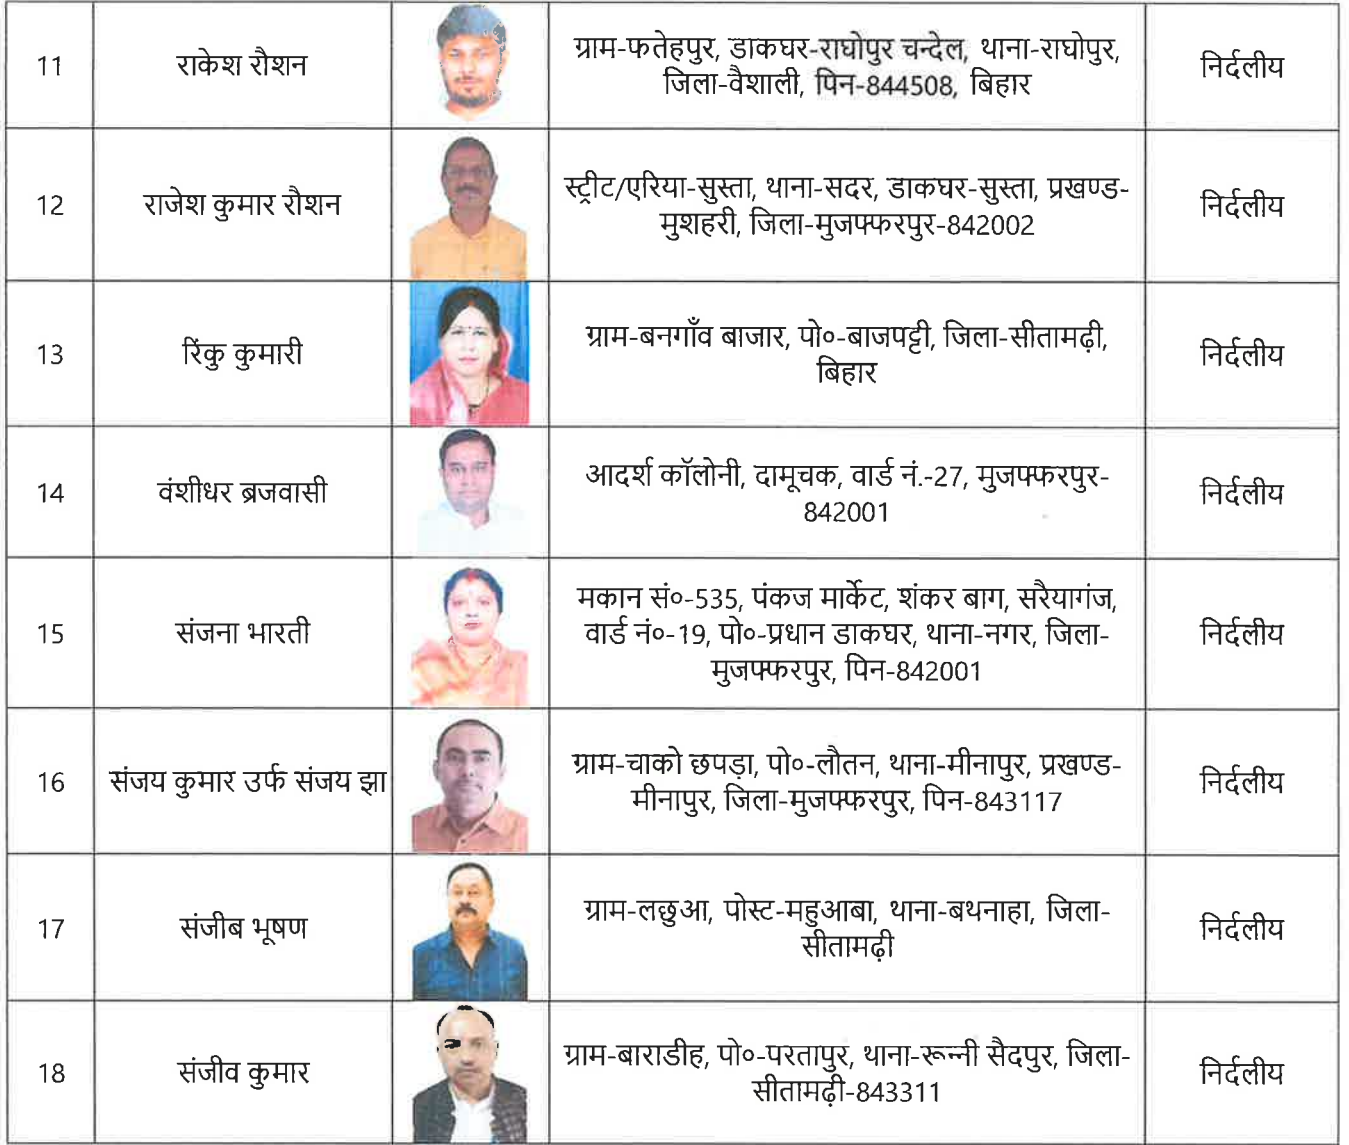 11
राकेश रौशन
ग्राम-फतेहपुर, डाकघर-राघोपुर चन्देल, थाना-राघोपुर,
जिला-वैशाली, पिन-844508, बिहार
निर्दलीय
12
राजेश कुमार रौशन
स्ट्रीट/एरिया-सुस्ता, थाना-सदर, डाकघर-सुस्ता, प्रखण्ड-
मुशहरी, जिला-मुजफ्फरपुर-842002
निर्दलीय
13
रिंकु कुमारी
ग्राम-बनगाँव बाजार, पो०-बाजपट्टी, जिला-सीतामढ़ी,
बिहार
निर्दलीय
14
वंशीधर ब्रजवासी
आदर्श कॉलोनी, दामूचक, वार्ड नं.-27, मुजफ्फरपुर-
842001
निर्दलीय
15
संजना भारती
मकान सं०-535, पंकज मार्केट, शंकर बाग, सरैयागंज,
वार्ड नं०-19, पो०-प्रधान डाकघर, थाना-नगर, जिला-
मुजफ्फरपुर, पिन-842001
निर्दलीय
16
संजय कुमार उर्फ संजय झा
ग्राम-चाको छपड़ा, पो०-लौतन, थाना-मीनापुर, प्रखण्ड-
मीनापुर, जिला-मुजफ्फरपुर, पिन-843117
निर्दलीय
17
संजीब भूषण
ग्राम-लछुआ, पोस्ट-महुआबा, थाना-बथनाहा, जिला-
सीतामढ़ी
निर्दलीय
18
संजीव कुमार
ग्राम-बाराडीह, पो०-परतापुर, थाना-रून्नी सैदपुर, जिला-
सीतामढ़ी-843311
निर्दलीय